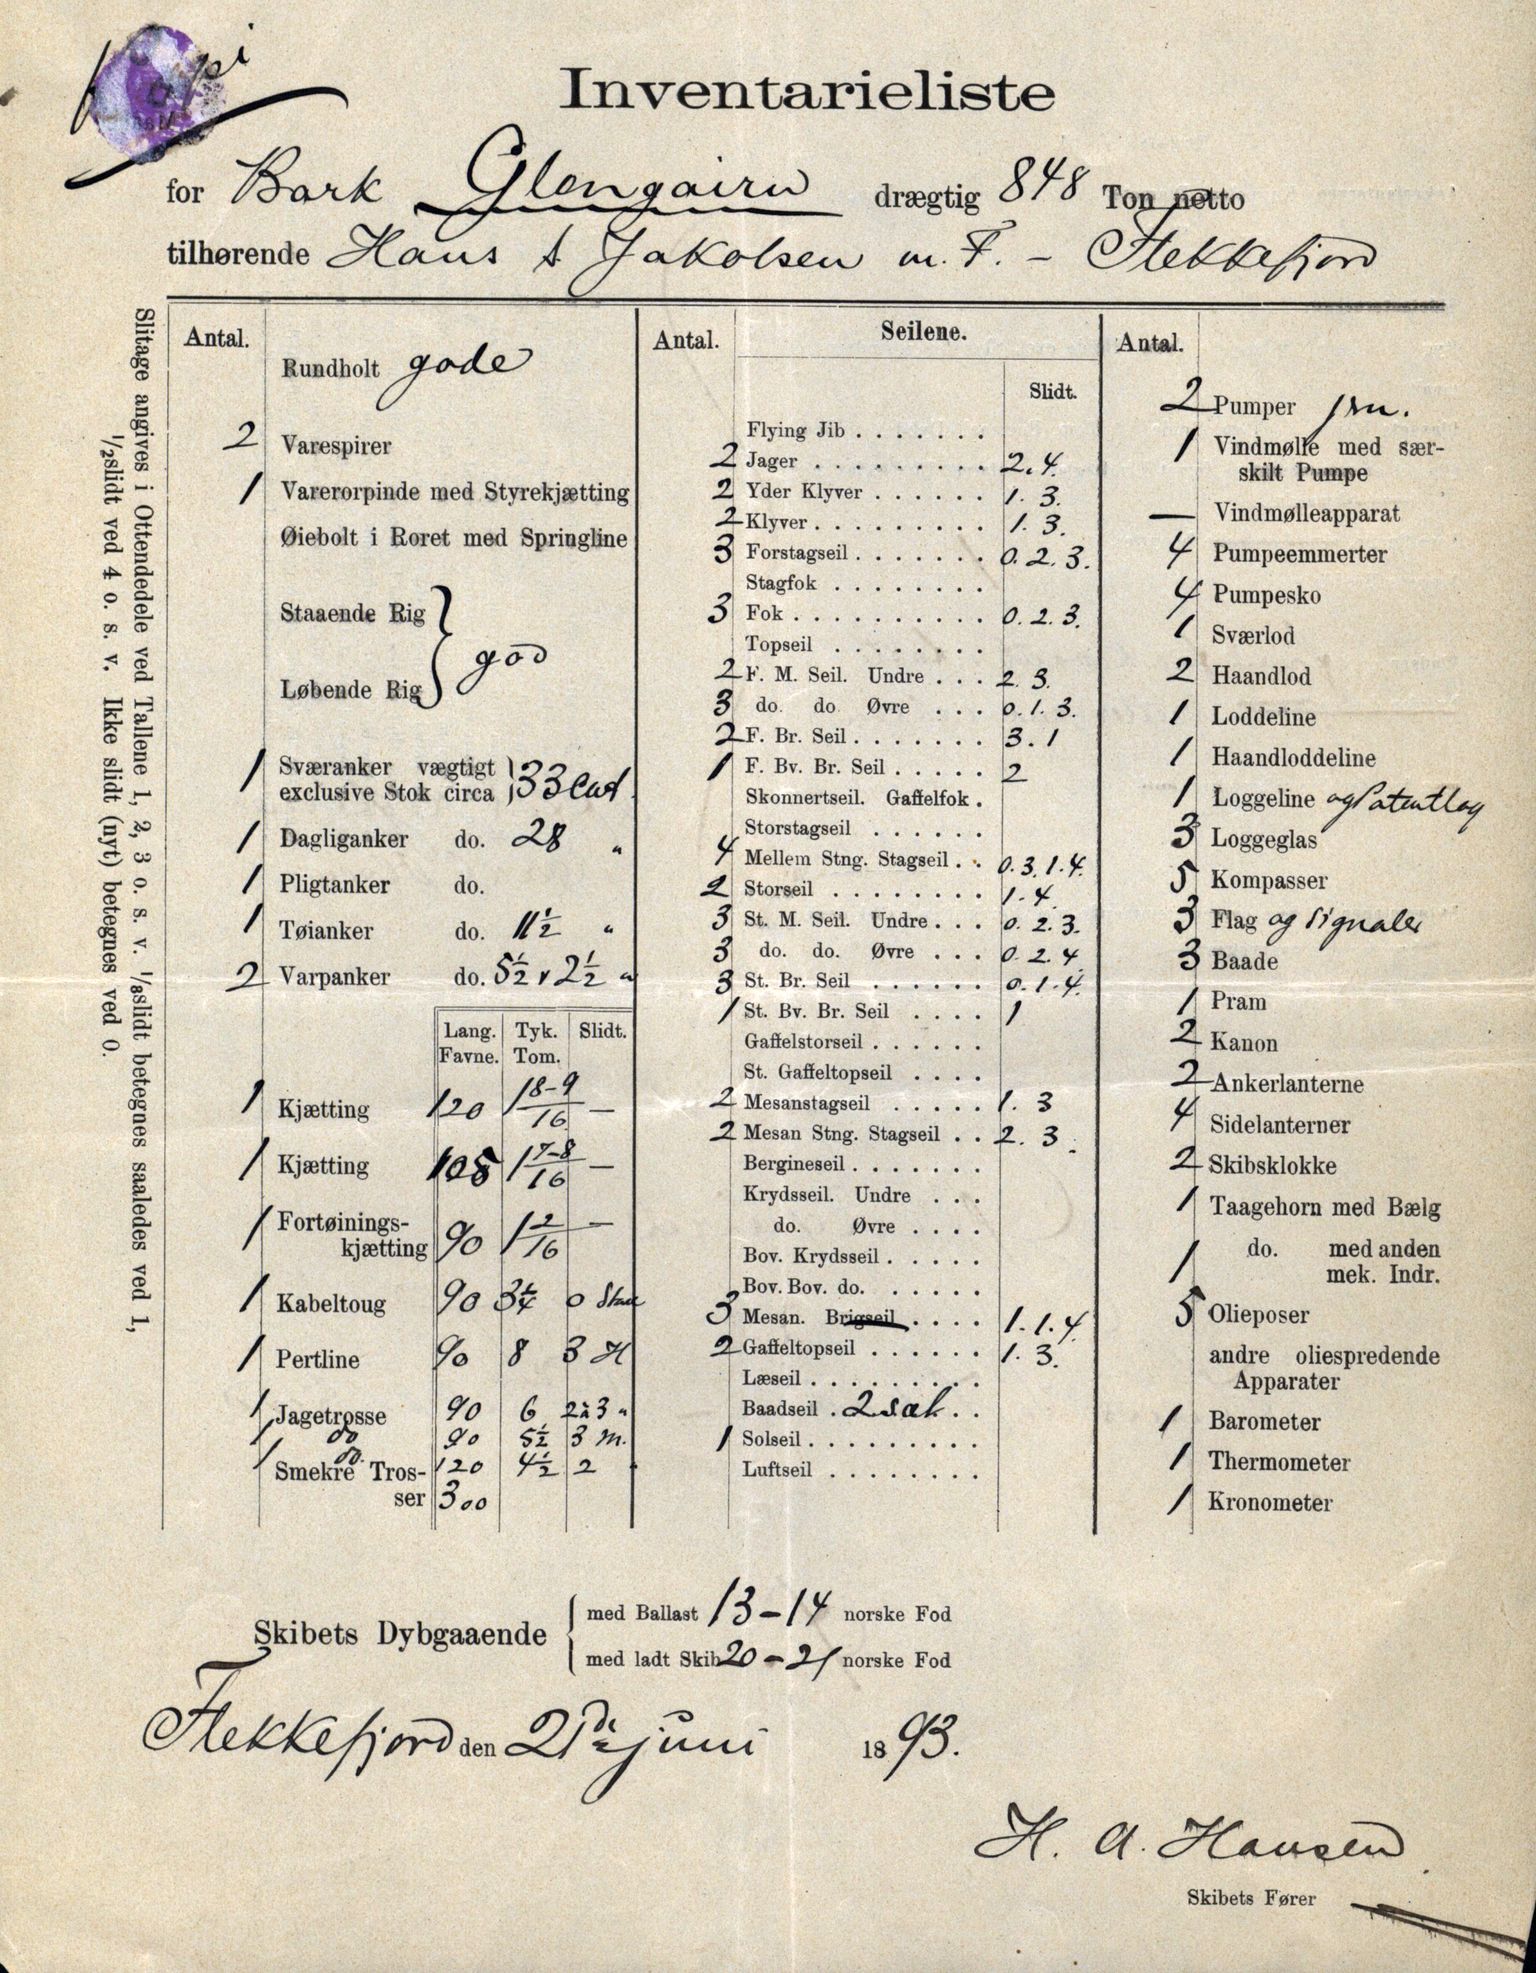 Kopi
Inventarieliste
for Bark Glengairn drægtig 848 Ton netto
tilhørende Hans A Jakobsen m. F. – Flekkefjord
Slitage angives i Ottendedele ved Tallene 1, 2, 3 o. s. v. 1/8 slidt betegnes saaledes ved 1,
1/2 slidt ved 4 o. s. v. Ikke slidt (nyt) betegnes ved 0.
Antal.
Rundholt gode
2 Varespirer
1 Varerorpinde med Styrekjætting
Øiebolt i Roret med Springline
Staaende Rig
god
Løbende Rig
1 Sværanker vægtigt
exclusive Stok circa 33 Cwt
1 Dagliganker do. 28 "
1 Pligtanker do.
1 Tøianker do. 11 1/2 "
2 Varpanker do. 5 1/2 & 2 1/2 "
Lang. Tyk. Slidt.
Favne. Tom.
1 Kjætting 120 1 8-9/16 —
1 Kjætting 105 1 7-8/16 —
1 Fortøinings-
kjætting 90 1 2/16 —
1 Kabeltoug 90 3 1/4 0
1 Pertline 90 8 3 H
1 Jagetrosse 90 6 2 à 3 "
1 do 90 5 1/2 3 M.
1 do. 120 4 1/2 2
Smekre Tros-
ser 300
Antal. Seilene.
Slidt.
Flying Jib . . . . . . .
2 Jager . . . . . . . . . 2. 4.
2 Yder Klyver . . . . . . 1. 3.
2 Klyver . . . . . . . . . 1. 3.
3 Forstagseil . . . . . . . 0. 2. 3.
Stagfok . . . . . . . .
3 Fok . . . . . . . . . . 0. 2. 3.
Topseil . . . . . . . .
2 F. M. Seil. Undre . . . 2. 3.
3 do. do. Øvre . . . 0. 1. 3.
2 F. Br. Seil . . . . . . . 3. 1
1 F. Bv. Br. Seil . . . . . 2
Skonnertseil. Gaffelfok .
Storstagseil . . . . . .
4 Mellem Stng. Stagseil . . 0. 3. 1. 4.
2 Storseil . . . . . . . . 1. 4.
3 St. M. Seil. Undre . . . 0. 2. 3.
3 do. do. Øvre . . . 0. 2. 4.
3 St. Br. Seil . . . . . . 0. 1. 4.
1 St. Bv. Br. Seil . . . . 1
Gaffelstorseil . . . . . .
St. Gaffeltopseil . . . .
2 Mesanstagseil . . . . . 1. 3
2 Mesan Stng. Stagseil . . 2. 3.
Bergineseil . . . . . . .
Krydsseil. Undre . . .
do. Øvre . . . .
Bov. Krydsseil . . . . .
Bov. Bov. do. . . . . .
3 Mesan. Brigseil . . . . 1. 1. 4.
2 Gaffeltopseil . . . . . . 1. 3.
Læseil . . . . . . . . .
Baadseil . 2 sæt . .
1 Solseil . . . . . . . . .
Luftseil . . . . . . . .
Antal.
2 Pumper jrn.
1 Vindmølle med sær-
skilt Pumpe
— Vindmølleapparat
4 Pumpeemmerter
4 Pumpesko
1 Sværlod
2 Haandlod
1 Loddeline
1 Haandloddeline
1 Loggeline og Patentlog
3 Loggeglas
5 Kompasser
3 Flag og Signaler
3 Baade
1 Pram
2 Kanon
2 Ankerlanterne
4 Sidelanterner
2 Skibsklokke
1 Taagehorn med Bælg
1 do. med anden
mek. Indr.
5 Olieposer
andre oliespredende
Apparater
1 Barometer
1 Thermometer
1 Kronometer
Skibets Dybgaaende
med Ballast 13 – 14 norske Fod
med ladt Skib 20 – 21 norske Fod
Flekkefjord den 21de juni 1893.
H. A. Hansen
Skibets Fører